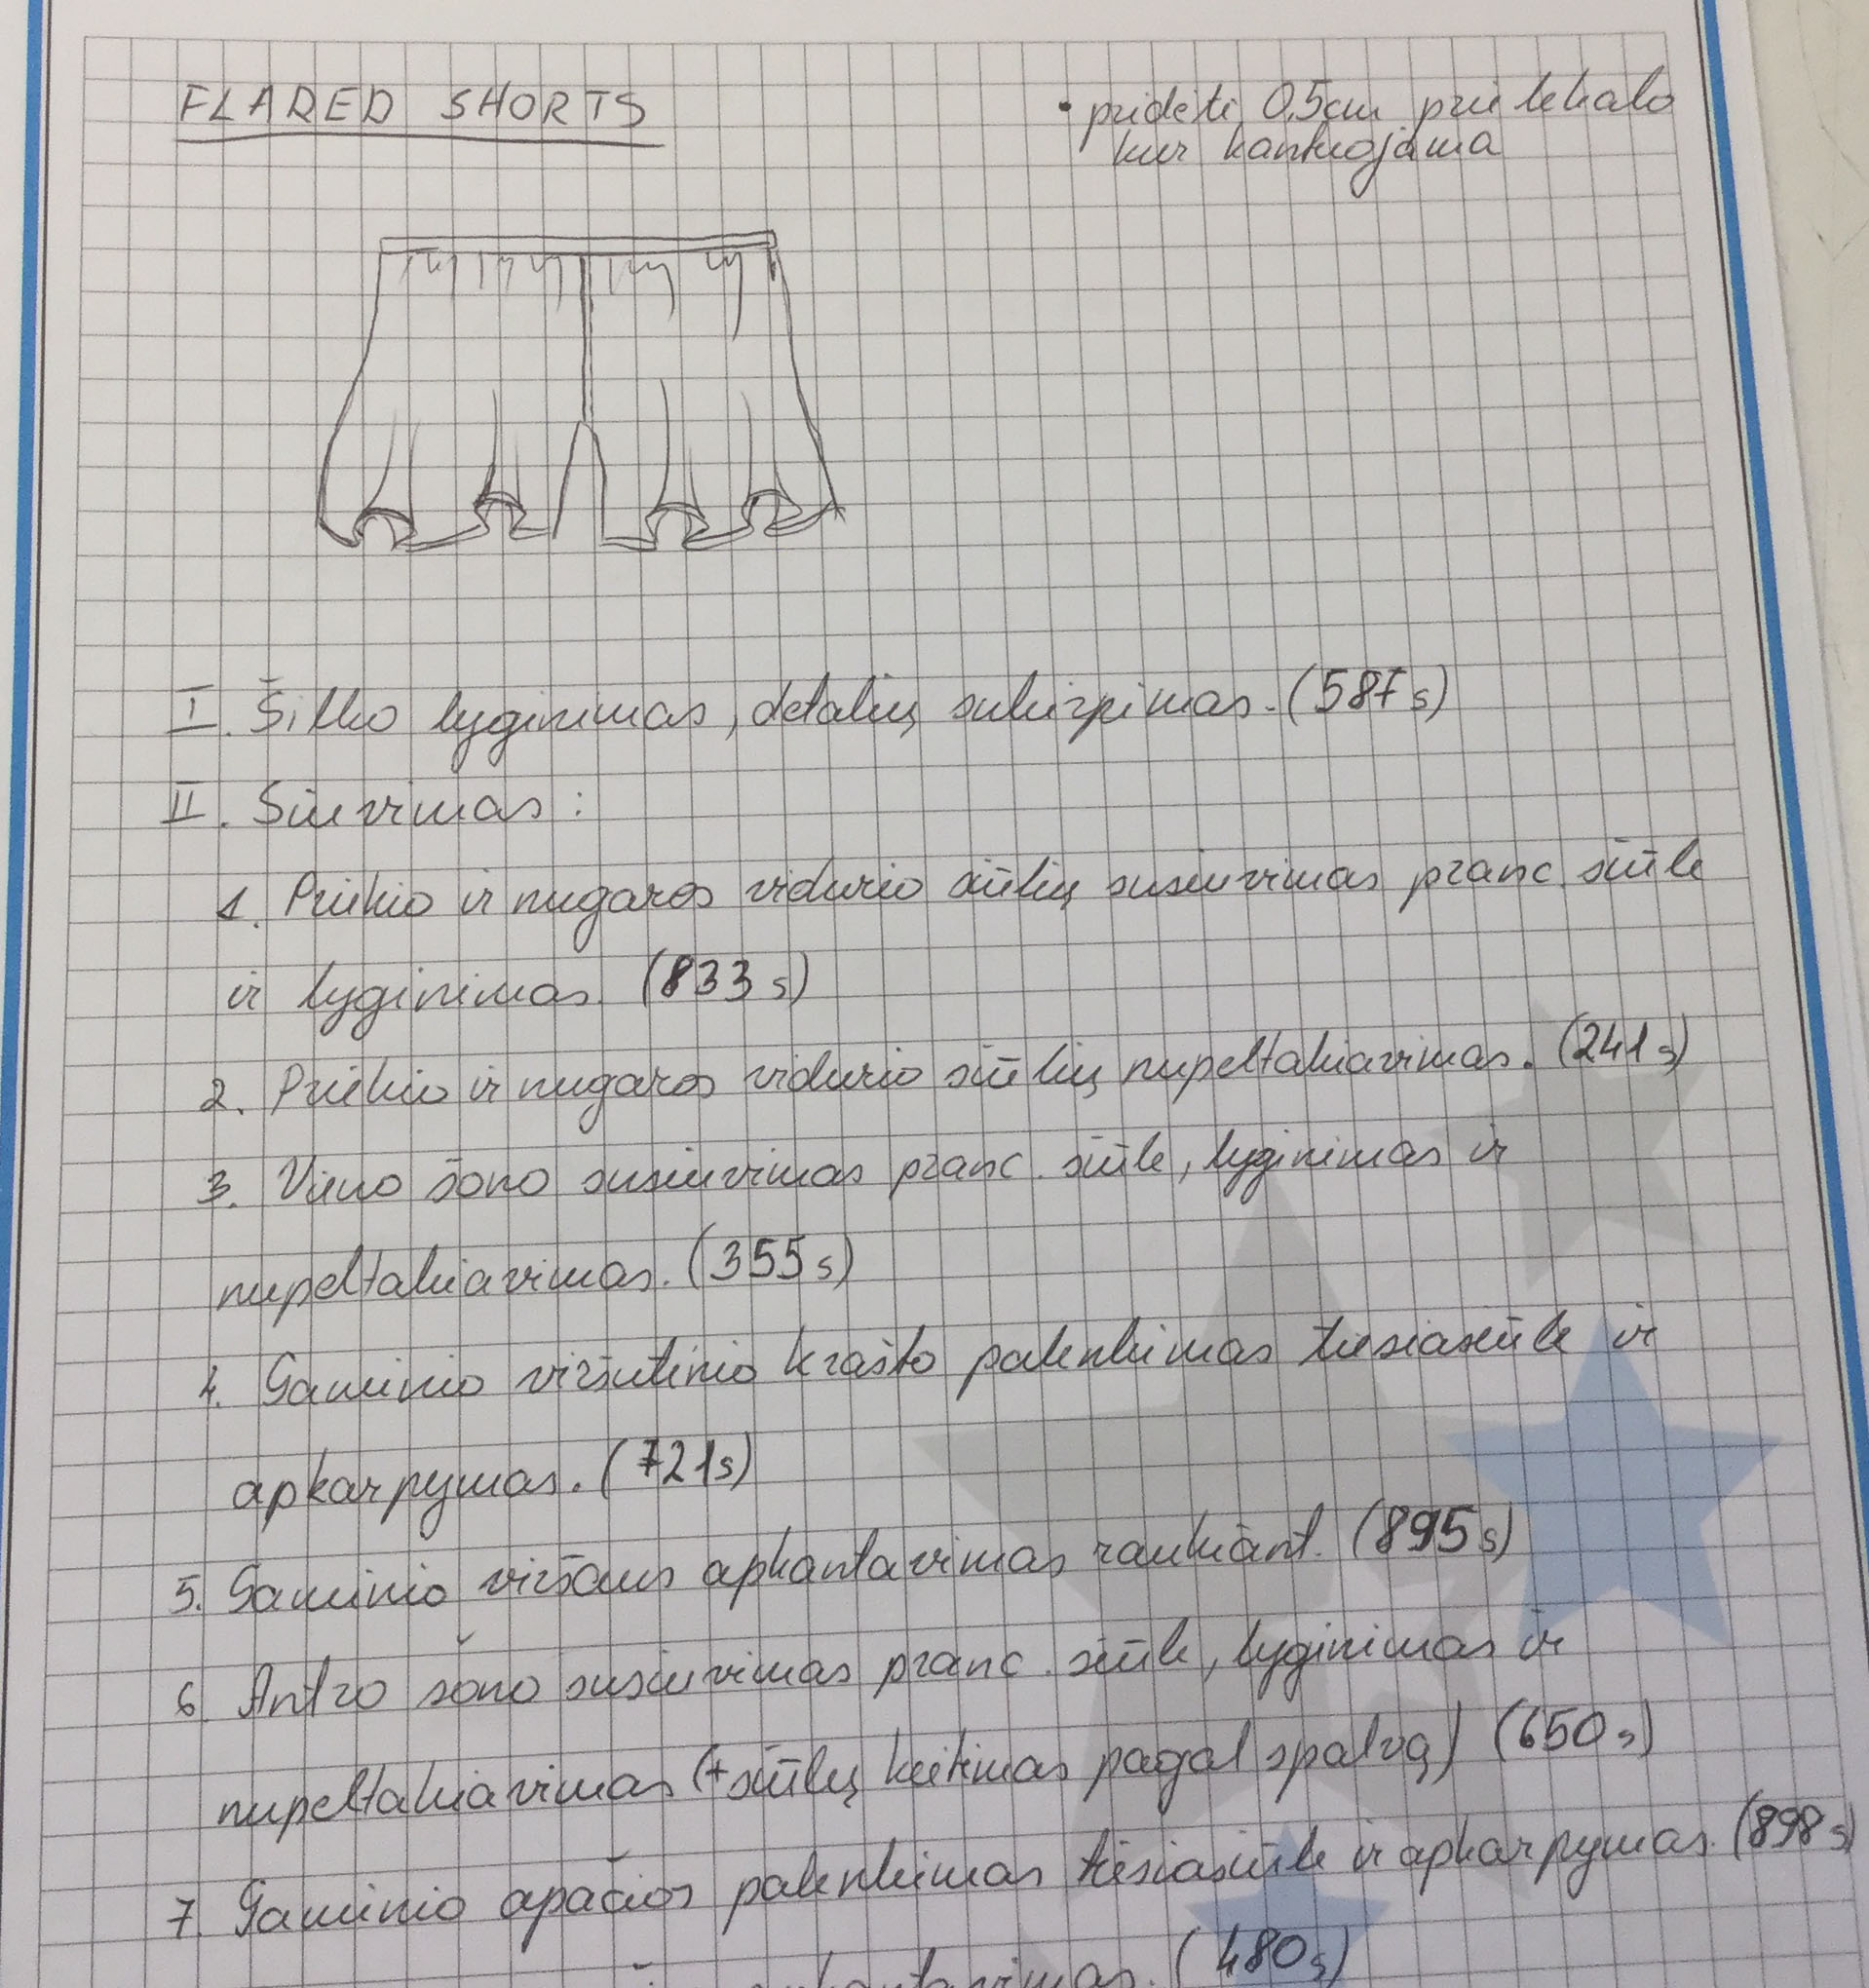 FLARED SHORTS
• pridėti 0,5cm prie lekalo
kur kantuojama
I. Šilko lyginimas, detalių sukirpimas. (587 s)
II. Siuvimas:
1. Priekio ir nugaros vidurio siūlių susiuvimas pranc. siūle
ir lyginimas. (833 s)
2. Priekio ir nugaros vidurio siūlių nupeltakiavimas. (241 s)
3. Vieno šono susiuvimas pranc. siūle, lyginimas ir
nupeltakiavimas. (355 s)
4. Gaminio viršutinio krašto palenkimas tiesiasiūle ir
apkarpymas. (721 s)
5. Gaminio viršaus apkantavimas raukiant. (895 s)
6. Antro šono susiuvimas pranc. siūle, lyginimas ir
nupeltakiavimas (+ siūlų keitimas pagal spalvą) (650 s)
7. Gaminio apačios palenkimas tiesiasiūle ir apkarpymas. (898 s)
(480 s)